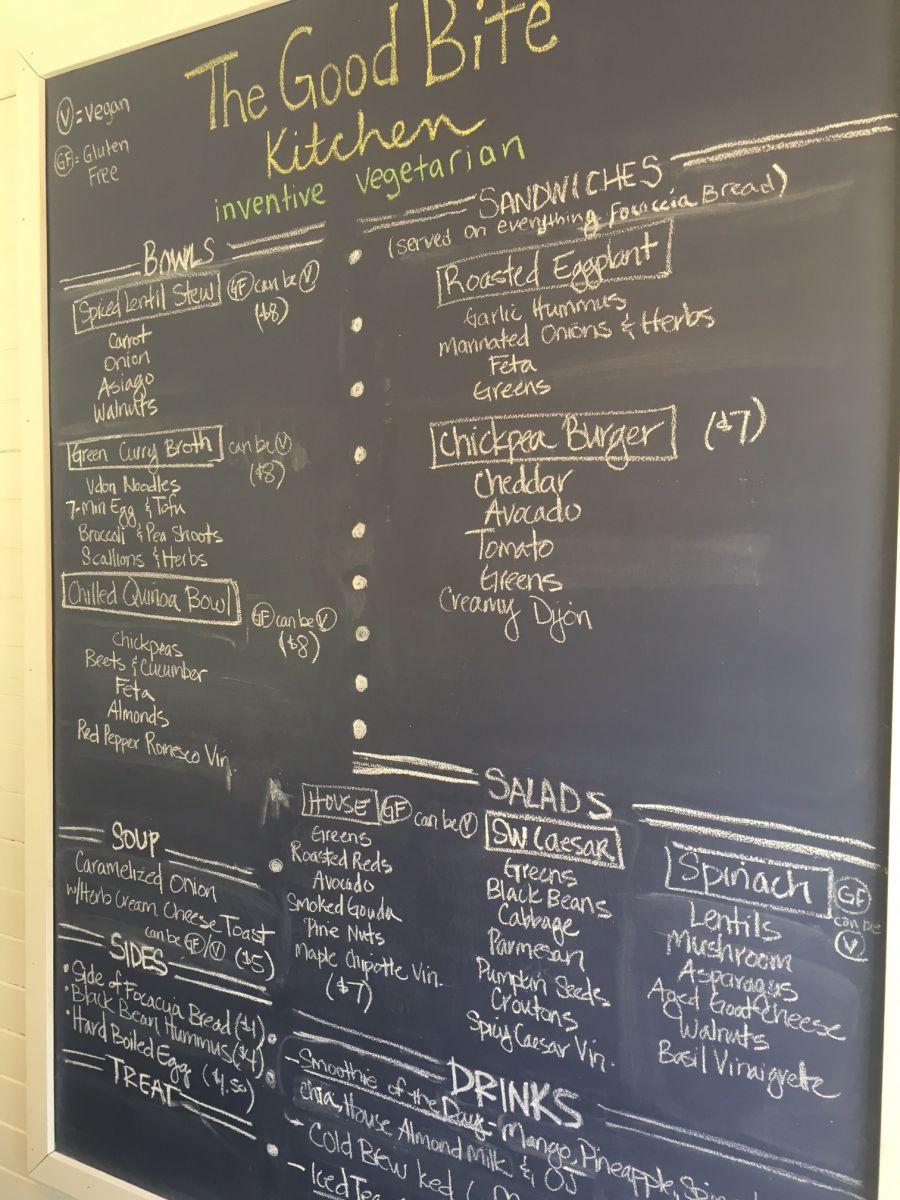 The Good Bite
Kitchen
inventive vegetarian
V = Vegan
GF = Gluten
Free
BOWLS
Spiced Lentil Stew GF can be V
($8)
Carrot
Onion
Asiago
Walnuts
Green Curry Broth can be V
($8)
Udon Noodles
7-min Egg & Tofu
Broccoli & Pea Shoots
Scallions & Herbs
Chilled Quinoa Bowl GF can be V
($8)
Chickpeas
Beets & Cucumber
Feta
Almonds
Red Pepper Romesco Vin.
SOUP
Caramelized Onion
w/Herb Cream Cheese Toast
can be GF/V ($5)
SIDES
• Side of Focaccia Bread ($1)
• Black Bean Hummus ($4)
• Hard Boiled Egg ($1.50)
TREAT
SANDWICHES
(served on everything Foccacia Bread)
Roasted Eggplant
Garlic Hummus
Marinated Onions & Herbs
Feta
Greens
Chickpea Burger ($7)
Cheddar
Avocado
Tomato
Greens
Creamy Dijon
SALADS
HOUSE GF can be V
Greens
Roasted Reds
Avocado
Smoked Gouda
Pine Nuts
Maple Chipotle Vin.
($7)
SW Caesar
Greens
Black Beans
Cabbage
Parmesan
Pumpkin Seeds
Croutons
Spicy Caesar Vin.
Spinach GF
can be
V
Lentils
Mushroom
Asparagus
Aged Goat Cheese
Walnuts
Basil Vinaigrette
DRINKS
- Smoothie of the Day - Mango, Pineapple,
Chia, House Almond Milk & OJ
- Cold Brew
- Iced Tea